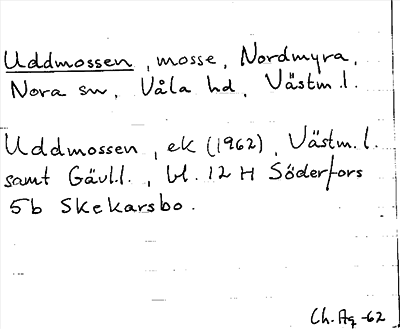 Uddmossen, mosse, Nordmyra,
Nora sn, Våla hd, Västm.l.
Uddmossen, ek (1962), Västm.l.
samt Gävl.l., bl. 12 H Söderfors
5b Skekarsbo.
Ch. Ag -62